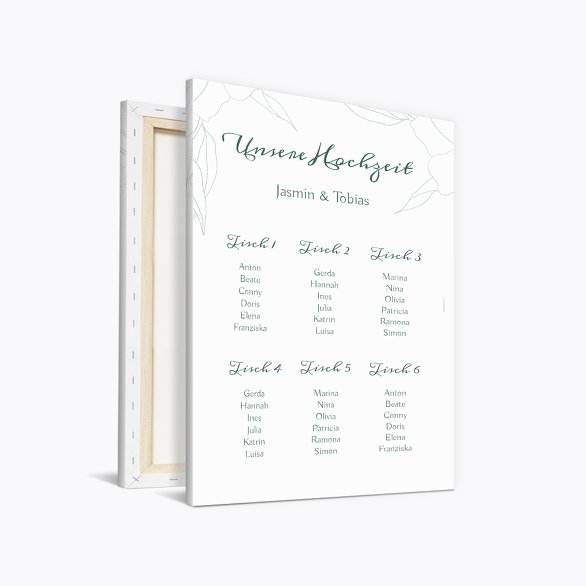 Unsere Hochzeit
Jasmin & Tobias
Tisch 1
Anton
Beate
Conny
Doris
Elena
Franziska
Tisch 2
Gerda
Hannah
Ines
Julia
Katrin
Luisa
Tisch 3
Marina
Nina
Olivia
Patricia
Ramona
Simon
Tisch 4
Gerda
Hannah
Ines
Julia
Katrin
Luisa
Tisch 5
Marina
Nina
Olivia
Patricia
Ramona
Simon
Tisch 6
Anton
Beate
Conny
Doris
Elena
Franziska